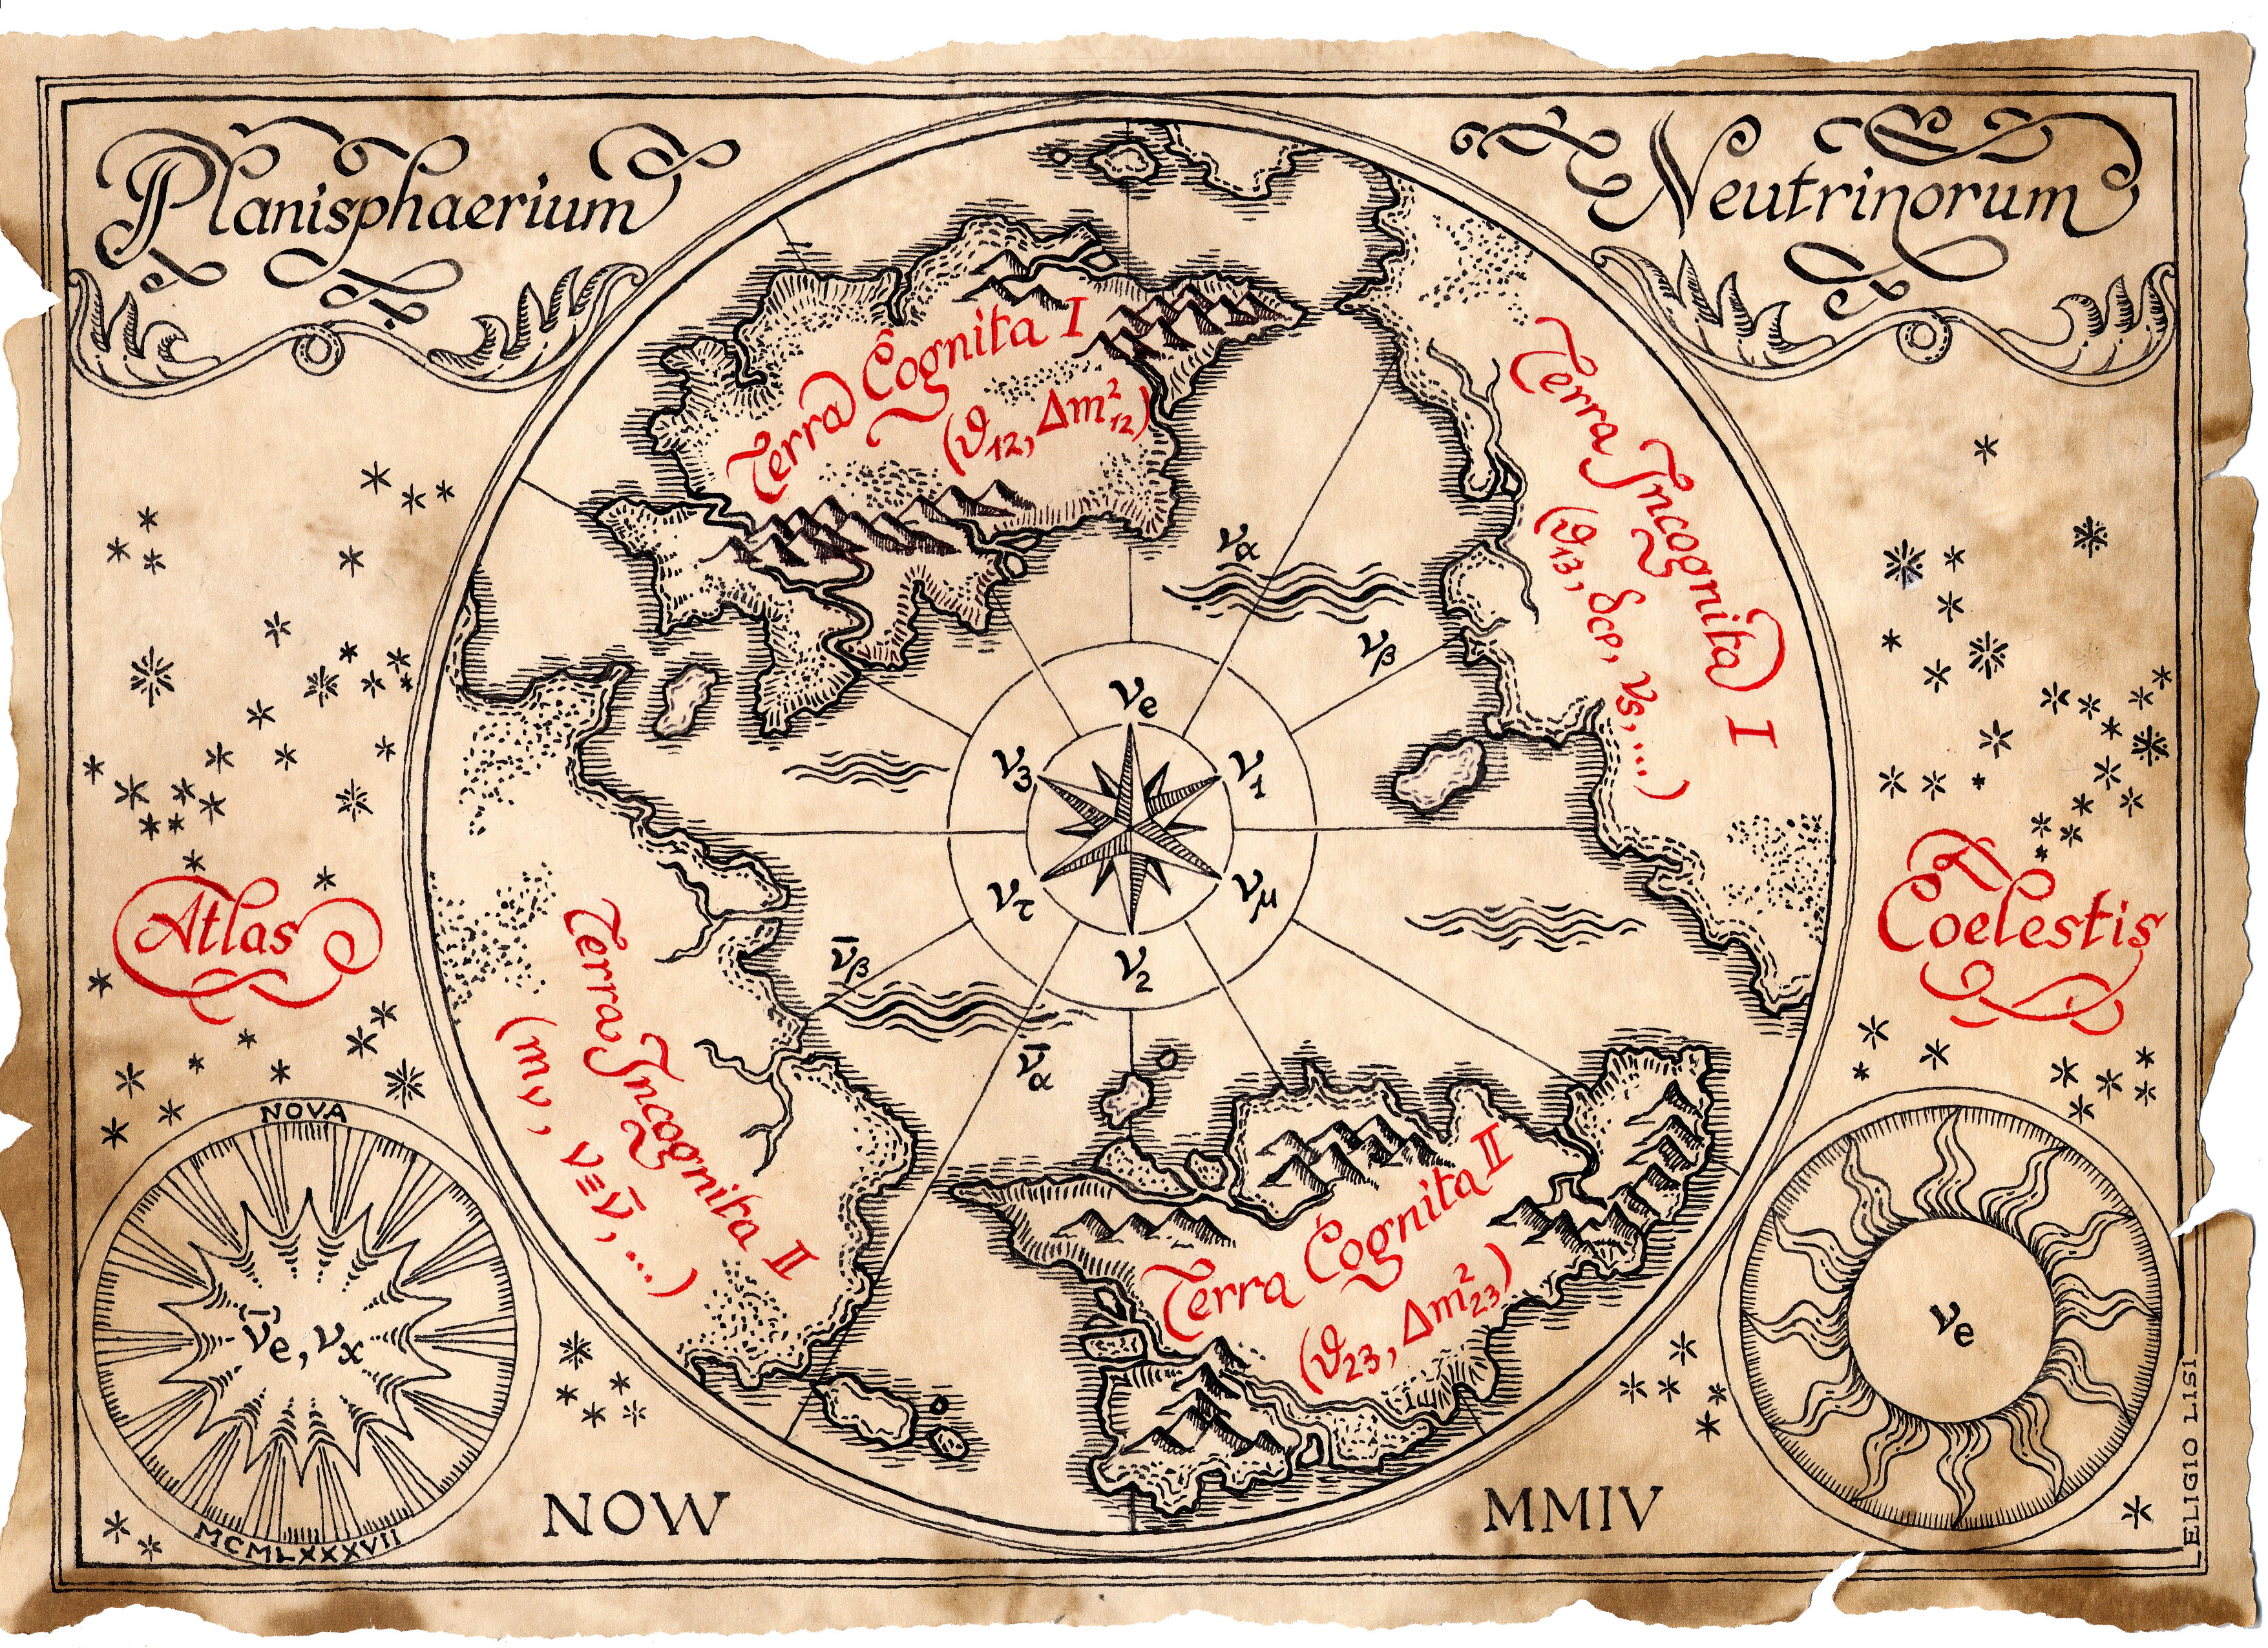 Planisphaerium
Neutrinorum
Terra Cognita I
(ϑ₁₂, Δm²₁₂)
Terra Incognita I
(ϑ₁₃, δCP, νs, ...)
να
νβ
νe
ν₃
ν₁
ντ
νμ
ν₂
ν̄β
ν̄α
Atlas
Coelestis
Terra Incognita II
(mν, ν≡ν̄, ...)
Terra Cognita II
(ϑ₂₃, Δm²₂₃)
NOVA
(ν̄)e, νx
MCMLXXXVII
νe
NOW
MMIV
ELIGIO LISI